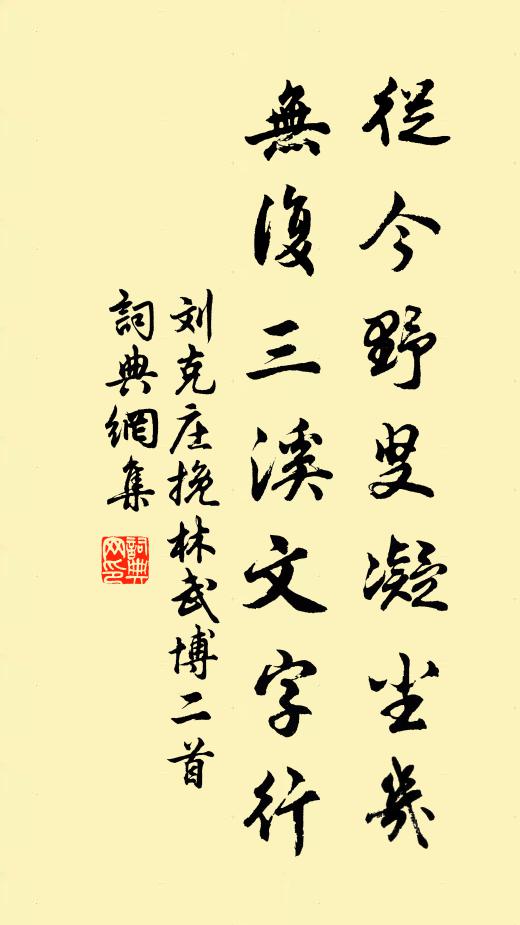 從今野叟凝尘几
無復三溪文字行
刘克庄挽林武博二首
詞典網集
詞典网印